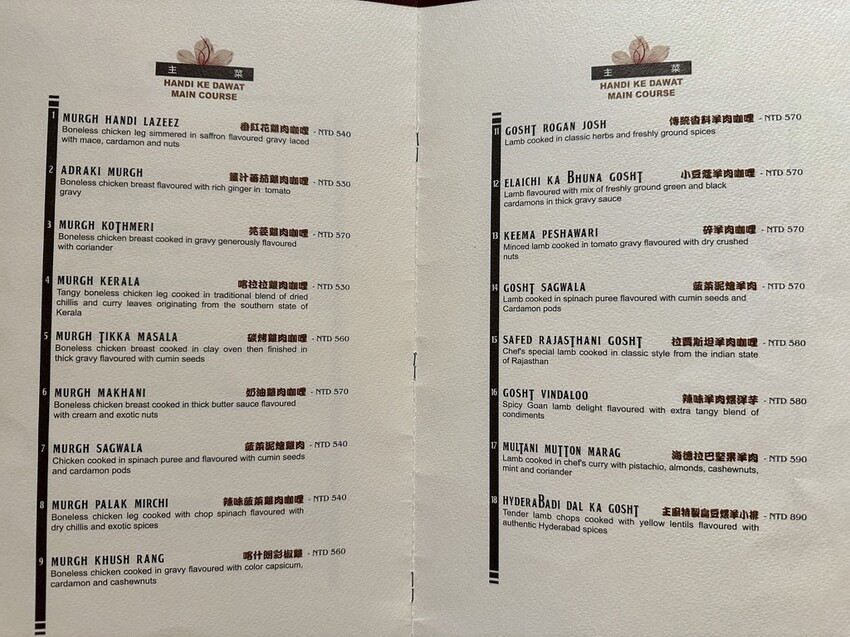 主 菜
HANDI KE DAWAT
MAIN COURSE
1 MURGH HANDI LAZEEZ 番紅花雞肉咖哩 - NTD 540
Boneless chicken leg simmered in saffron flavoured gravy laced
with mace, cardamon and nuts
2 ADRAKI MURGH 薑汁蕃茄雞肉咖哩 - NTD 530
Boneless chicken breast flavoured with rich ginger in tomato
gravy
3 MURGH KOTHMERI 芫荽雞肉咖哩 - NTD 570
Boneless chicken breast cooked in gravy generously flavoured
with coriander
4 MURGH KERALA 喀拉拉雞肉咖哩 - NTD 530
Tangy boneless chicken leg cooked in traditional blend of dried
chillis and curry leaves originating from the southern state of
Kerala
5 MURGH TIKKA MASALA 碳烤雞肉咖哩 - NTD 560
Boneless chicken breast cooked in clay oven then finished in
thick gravy flavoured with cumin seeds
6 MURGH MAKHANI 奶油雞肉咖哩 - NTD 570
Boneless chicken breast cooked in thick butter sauce flavoured
with cream and exotic nuts
7 MURGH SAGWALA 菠菜泥燴雞肉 - NTD 540
Chicken cooked in spinach puree and flavoured with cumin seeds
and cardamon pods
8 MURGH PALAK MIRCHI 辣味菠菜雞肉咖哩 - NTD 540
Boneless chicken leg cooked with chop spinach flavoured with
dry chillis and exotic spices
9 MURGH KHUSH RANG 喀什朗彩椒雞 - NTD 560
Boneless chicken cooked in gravy flavoured with color capsicum,
cardamon and cashewnuts
主 菜
HANDI KE DAWAT
MAIN COURSE
11 GOSHT ROGAN JOSH 傳統香料羊肉咖哩 - NTD 570
Lamb cooked in classic herbs and freshly ground spices
12 ELAICHI KA BHUNA GOSHT 小豆蔻羊肉咖哩 - NTD 570
Lamb flavoured with mix of freshly ground green and black
cardamons in thick gravy sauce
13 KEEMA PESHAWARI 碎羊肉咖哩 - NTD 570
Minced lamb cooked in tomato gravy flavoured with dry crushed
nuts
14 GOSHT SAGWALA 菠菜泥燴羊肉 - NTD 570
Lamb cooked in spinach puree flavoured with cumin seeds and
Cardamon pods
15 SAFED RAJASTHANI GOSHT 拉賈斯坦羊肉咖哩 - NTD 580
Chef's special lamb cooked in classic style from the indian state
of Rajasthan
16 GOSHT VINDALOO 辣味羊肉煨洋芋 - NTD 580
Spicy Goan lamb delight flavoured with extra tangy blend of
condiments
17 MULTANI MUTTON MARAG 海德拉巴堅果羊肉 - NTD 590
Lamb cooked in chef's curry with pistachio, almonds, cashewnuts,
mint and coriander
18 HYDERABADI DAL KA GOSHT 主廚特製扁豆煨羊小排 - NTD 890
Tender lamb chops cooked with yellow lentils flavoured with
authentic Hyderabad spices